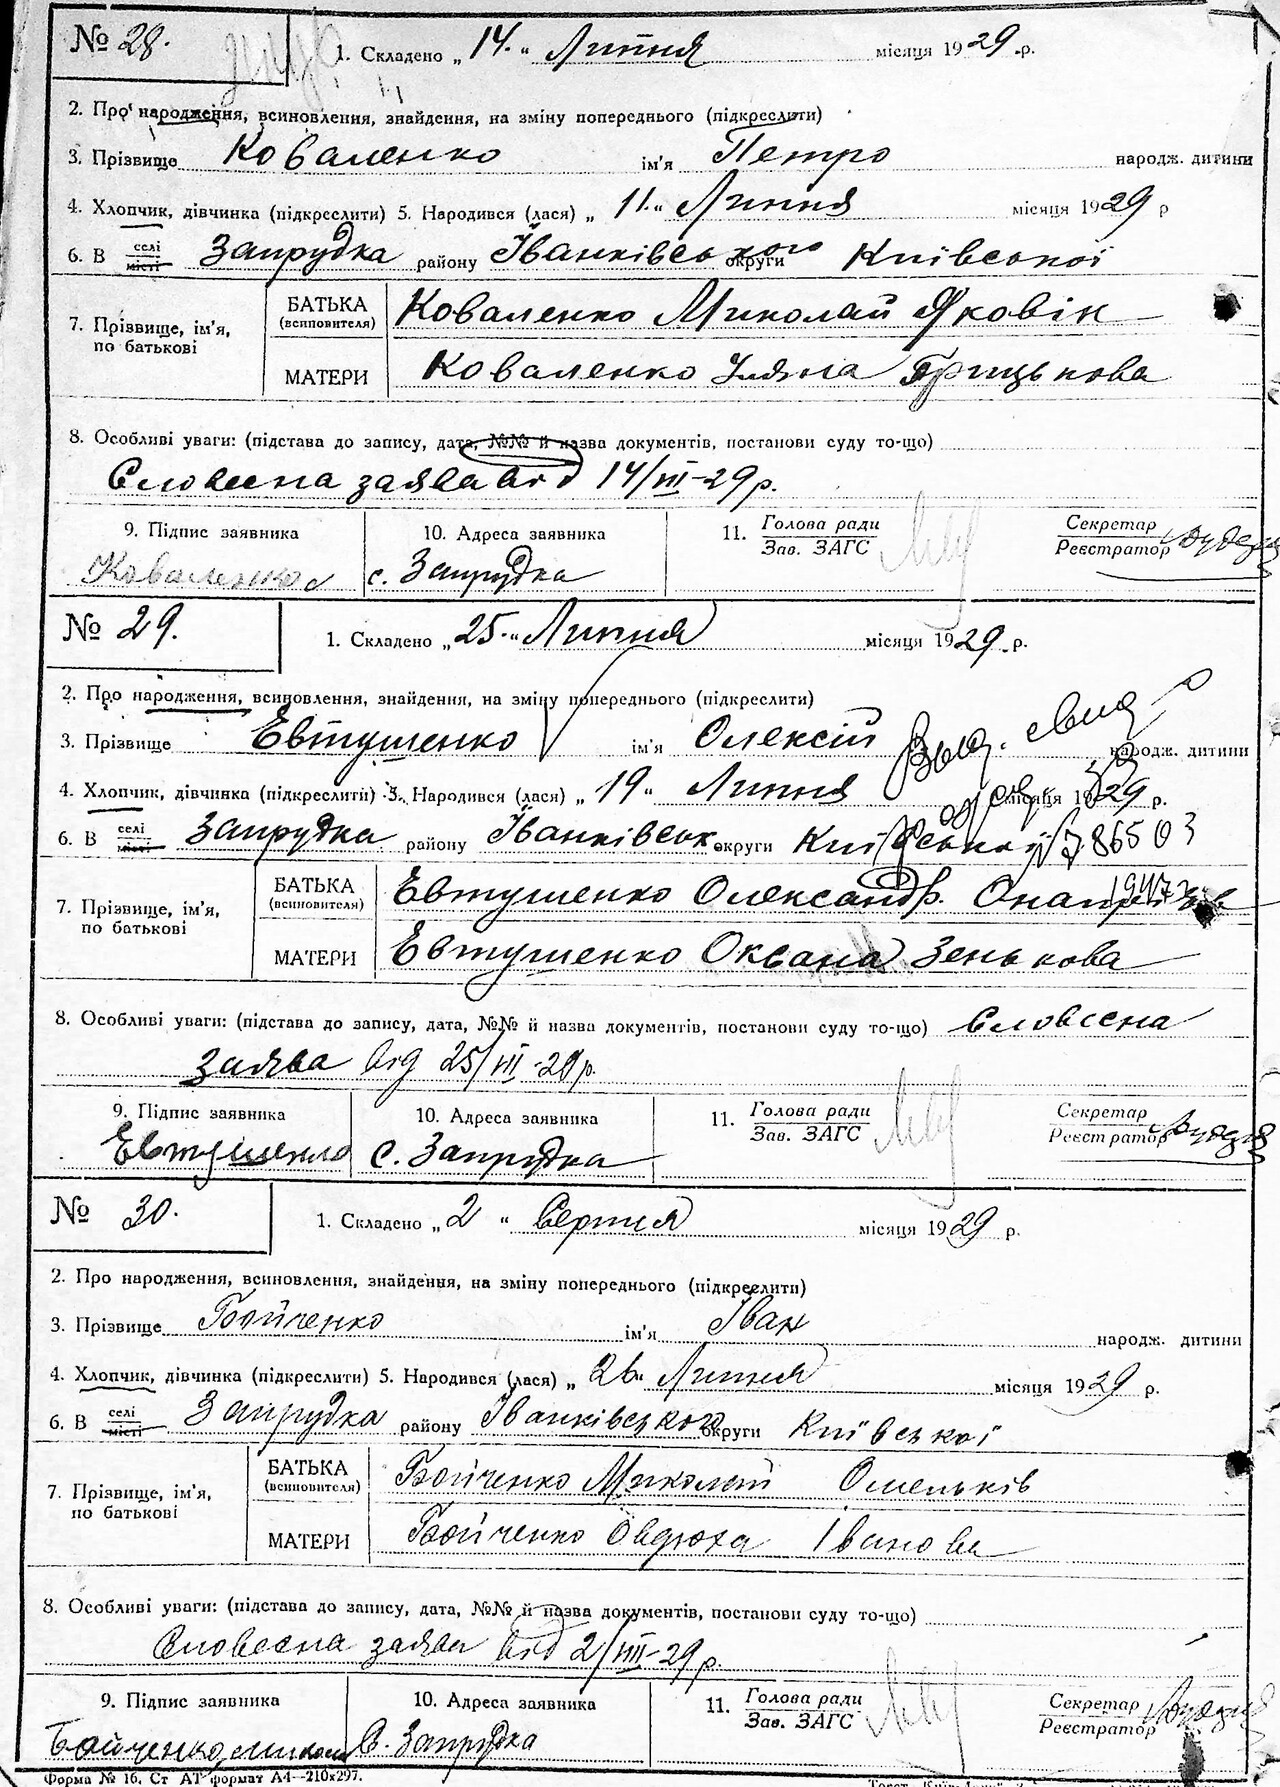 № 28. 1. Складено „14.“ Липня місяця 1929 р.
2. Про народження, всиновлення, знайдення, на зміну попереднього (підкреслити)
3. Прізвище Коваленко ім'я Петро народж. дитини
4. Хлопчик, дівчинка (підкреслити) 5. Народився (лася) „11.“ Липня місяця 1929 р
6. В селі місті Запрудка району Іванківського округи Київської
7. Прізвище, ім'я, по батькові БАТЬКА (всиновителя) Коваленко Миколай Яковін
МАТЕРИ Коваленко Уляна Грицькова
8. Особливі уваги: (підстава до запису, дата, №№ й назва документів, постанови суду то-що)
Словесна заява від 14/VII-29р.
9. Підпис заявника 10. Адреса заявника 11. Голова ради Зав. ЗАГС Секретар Реєстратор
Коваленко с. Запрудка
№ 29. 1. Складено „25.“ Липня місяця 1929 р.
2. Про народження, всиновлення, знайдення, на зміну попереднього (підкреслити)
3. Прізвище Евтушенко ім'я Олексій народж. дитини
4. Хлопчик, дівчинка (підкреслити) 5. Народився (лася) „19“ Липня місяця 1929 р.
6. В селі місті Запрудка району Іванківськ округи Київської 786503
7. Прізвище, ім'я, по батькові БАТЬКА (всиновителя) Евтушенко Олександр. 1947
МАТЕРИ Евтушенко Оксана Зенькова
8. Особливі уваги: (підстава до запису, дата, №№ й назва документів, постанови суду то-що) Словесна
заява від 25/VII-29р.
9. Підпис заявника 10. Адреса заявника 11. Голова ради Зав. ЗАГС Секретар Реєстратор
Евтушенко с. Запрудка
№ 30. 1. Складено „2“ Серпня місяця 1929 р.
2. Про народження, всиновлення, знайдення, на зміну попереднього (підкреслити)
3. Прізвище Бойченко ім'я Іван народж. дитини
4. Хлопчик, дівчинка (підкреслити) 5. Народився (лася) „26“ Липня місяця 1929 р.
6. В селі місті Запрудка району Іванківського округи Київської
7. Прізвище, ім'я, по батькові БАТЬКА (всиновителя) Бойченко Миколай Омельків
МАТЕРИ Бойченко Овдюха Іванова
8. Особливі уваги: (підстава до запису, дата, №№ й назва документів, постанови суду то-що)
Словесна заява від 2/VIII-29р.
9. Підпис заявника 10. Адреса заявника 11. Голова ради Зав. ЗАГС Секретар Реєстратор
Бойченко С. Запрудка
Форма № 16. Ст АТ формат А4—210х297.